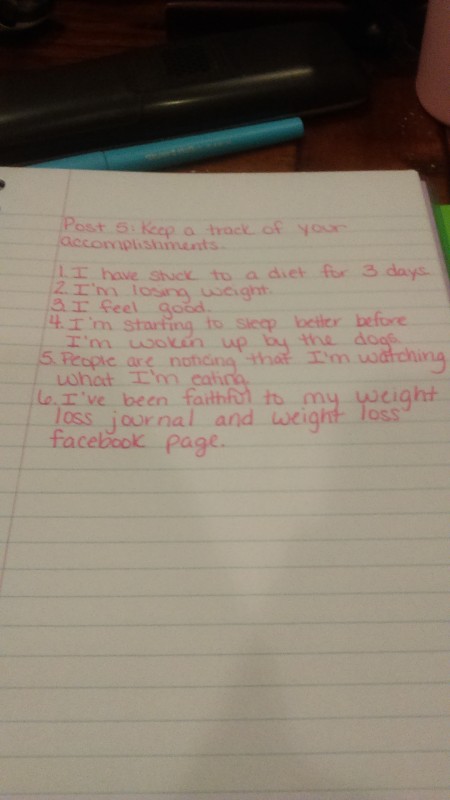 Post 5: Keep a track of your
accomplishments.
1. I have stuck to a diet for 3 days
2. I'm losing weight.
3. I feel good.
4. I'm starting to sleep better before
I'm woken up by the dogs.
5. People are noticing that I'm watching
what I'm eating.
6. I've been faithful to my weight
loss journal and weight loss
facebook page.